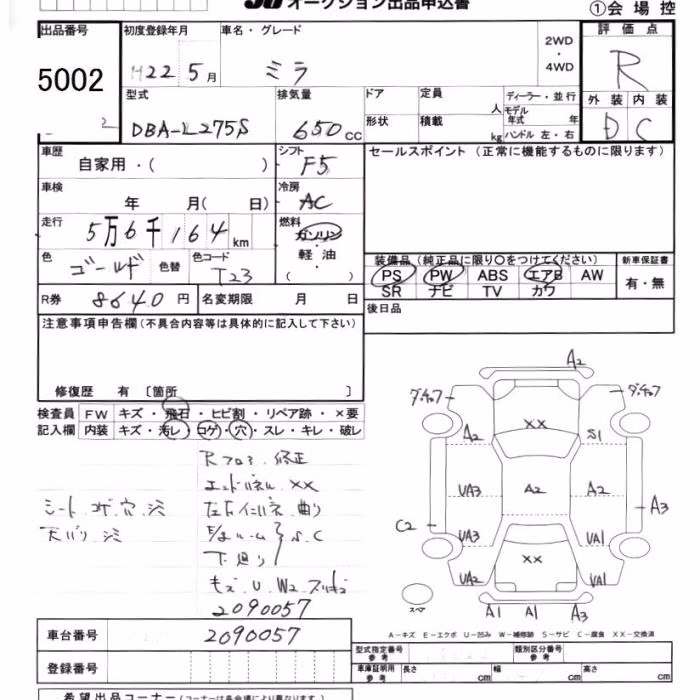 オークション出品申込書
①会場控
出品番号
5002
初度登録年月
H22 5月
車名・グレード
ミラ
2WD・4WD
評価点
R
外装 内装
D C
型式
DBA-L275S
排気量
650cc
ドア
形状
定員 人
積載 kg
ディーラー・並行
モデル年式 年
ハンドル 左・右
車歴
自家用・( )
シフト
F5
セールスポイント(正常に機能するものに限ります)
車検
年 月( 日)
冷房
AC
走行
5万6千164km
燃料
ガソリン・軽油
( )
色
ゴールド
色替
色コード
T23
装備品(純正品に限り〇をつけてください)
PS PW ABS エアB AW
SR ナビ TV カワ
新車保証書
有・無
R券 8640円
名変期限 月 日
後日品
注意事項申告欄(不具合内容等は具体的に記入して下さい)
修復歴 有 〔箇所 〕
検査員記入欄
FW キズ・飛石・ヒビ割・リペア跡・×要
内装 キズ・汚レ・コゲ・穴・スレ・キレ・破レ
シート コゲ 穴 シミ
天バリ シミ
Rフロア 修正
エンドパネル XX
曲り
S.C
下廻り
U W2
2090057
A2
A2
XX
S1
UA3
A2
A2
A3
C2
UA3
UA1
XX
UA2
UA1
スペア
A1
A1
A3
A-キズ E-エクボ U-凹み W-補修跡 S-サビ C-腐食 XX-交換済
車台番号
2090057
登録番号
型式指定番号 参考
類別区分番号
車庫証明用 参考
長さ cm
幅 cm
高さ cm
希望出品コーナー